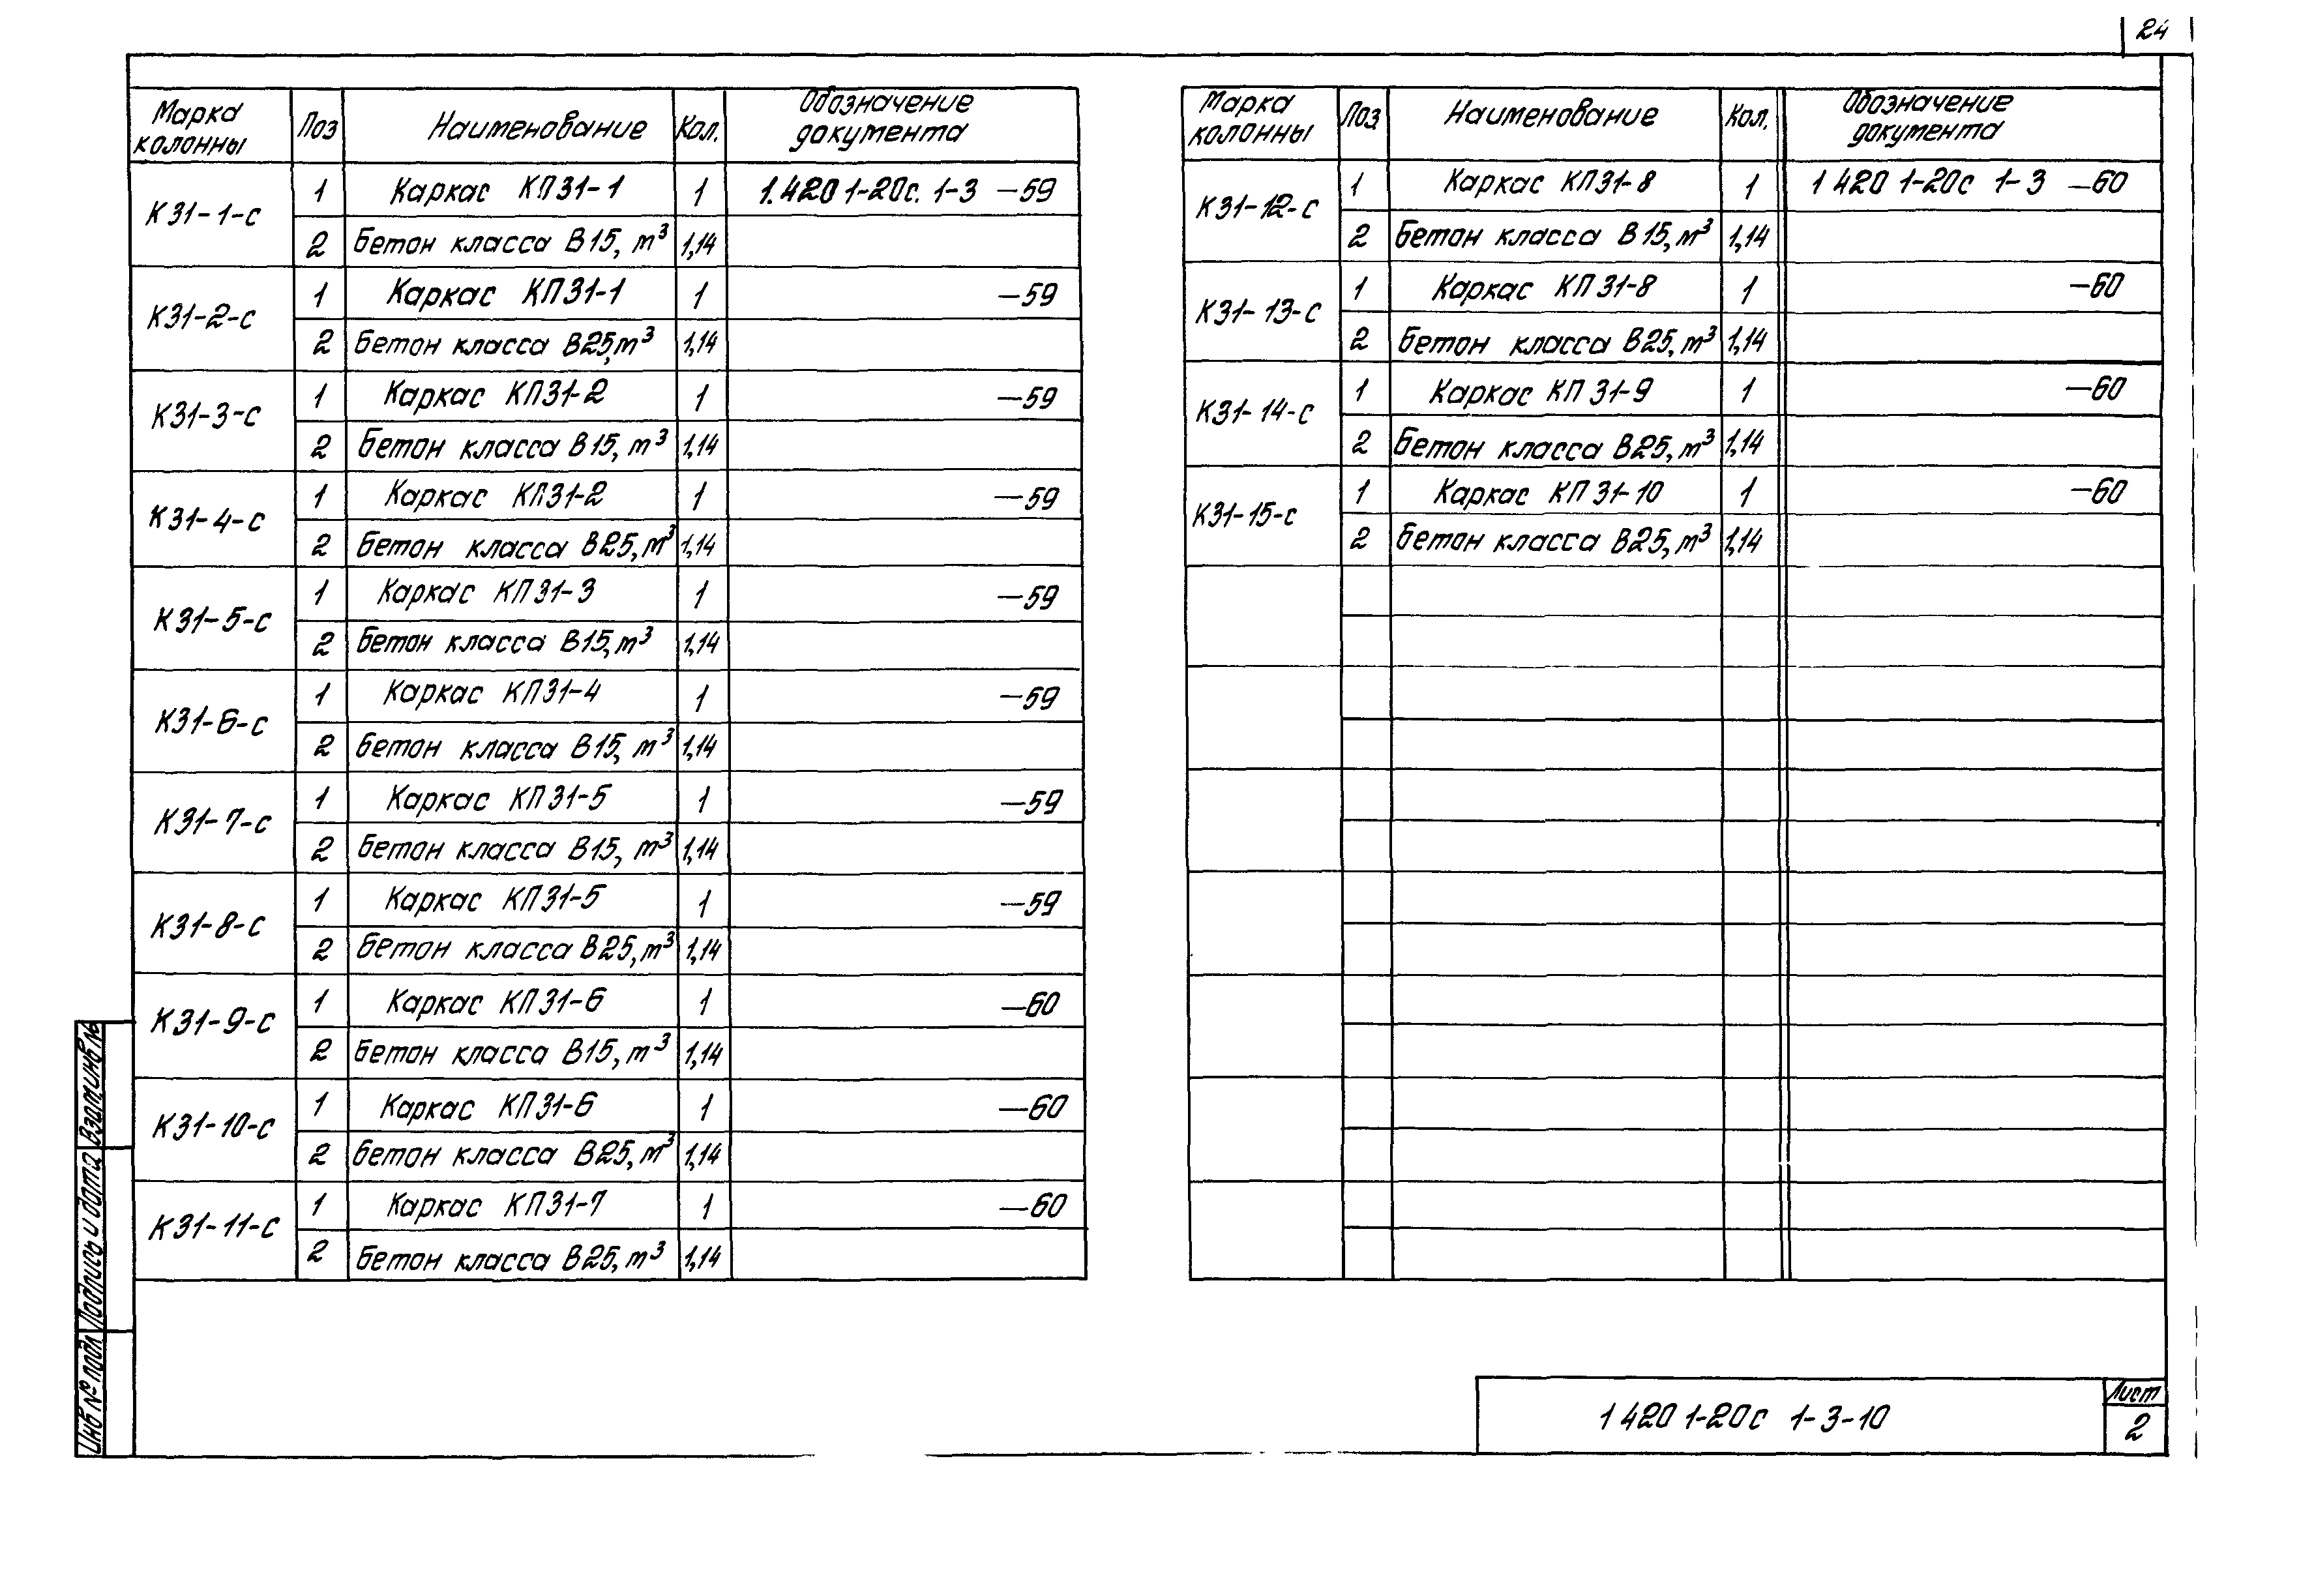 24
Марка колонны Поз Наименование Кол. Обозначение документа
К31-1-с 1 Каркас КП31-1 1 1.420 1-20с. 1-3 —59
2 Бетон класса В15, м³ 1,14
К31-2-с 1 Каркас КП31-1 1 —59
2 Бетон класса В25, м³ 1,14
К31-3-с 1 Каркас КП31-2 1 —59
2 Бетон класса В15, м³ 1,14
К31-4-с 1 Каркас КП31-2 1 —59
2 Бетон класса В25, м³ 1,14
К31-5-с 1 Каркас КП31-3 1 —59
2 Бетон класса В15, м³ 1,14
К31-6-с 1 Каркас КП31-4 1 —59
2 Бетон класса В15, м³ 1,14
К31-7-с 1 Каркас КП31-5 1 —59
2 Бетон класса В15, м³ 1,14
К31-8-с 1 Каркас КП31-5 1 —59
2 Бетон класса В25, м³ 1,14
К31-9-с 1 Каркас КП31-6 1 —60
2 Бетон класса В15, м³ 1,14
К31-10-с 1 Каркас КП31-6 1 —60
2 Бетон класса В25, м³ 1,14
К31-11-с 1 Каркас КП31-7 1 —60
2 Бетон класса В25, м³ 1,14
Марка колонны Поз Наименование Кол. Обозначение документа
К31-12-с 1 Каркас КП31-8 1 1 420 1-20с 1-3 —60
2 Бетон класса В15, м³ 1,14
К31-13-с 1 Каркас КП31-8 1 —60
2 Бетон класса В25, м³ 1,14
К31-14-с 1 Каркас КП31-9 1 —60
2 Бетон класса В25, м³ 1,14
К31-15-с 1 Каркас КП31-10 1 —60
2 Бетон класса В25, м³ 1,14
Инв № подл Подпись и дата Взам. инв №
1 420 1-20с 1-3-10
Лист
2